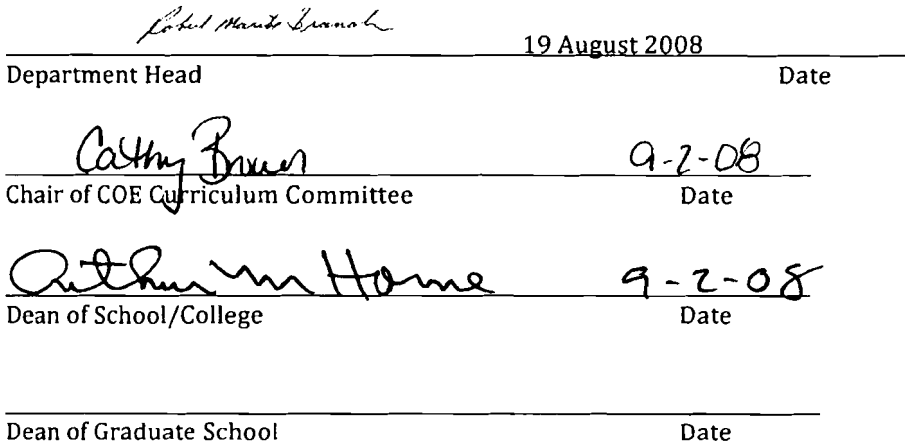 Branch 19 August 2008
Department Head Date
Cathy Brown 9-2-08
Chair of COE Curriculum Committee Date
Arthur M Horne 9-2-08
Dean of School/College Date
Dean of Graduate School Date